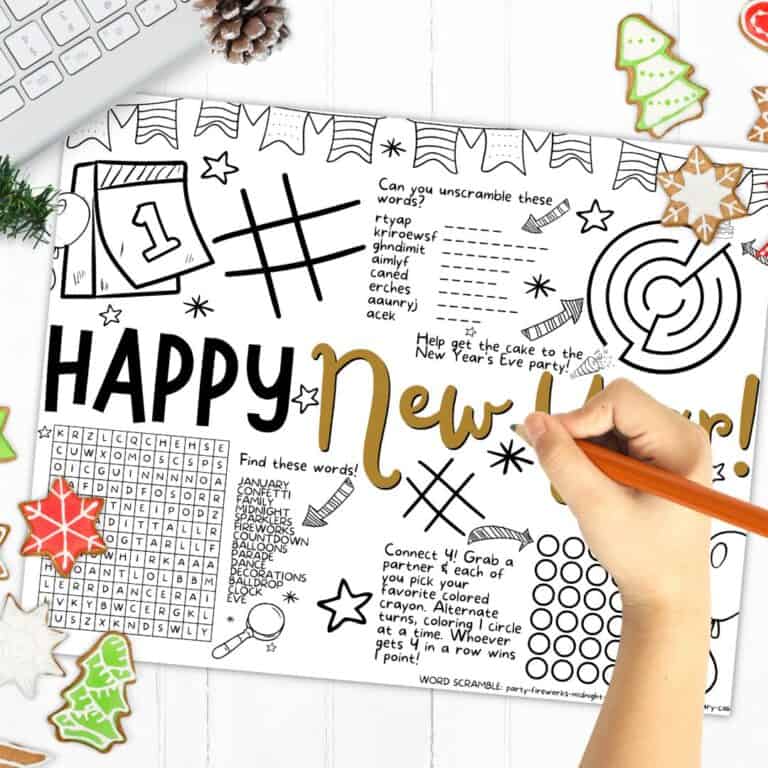 1
Can you unscramble these
words?
rtyap
kriroewsf
ghndimit
aimlyf
caned
erches
aaunryj
acek
Help get the cake to the
New Year's Eve party!
HAPPY New Year!
K R Z L C Q C H E M S E
C U W X O M O S C S P S
Find these words!
JANUARY
CONFETTI
FAMILY
MIDNIGHT
SPARKLERS
FIREWORKS
COUNTDOWN
BALLOONS
PARADE
DANCE
DECORATIONS
BALLDROP
CLOCK
EVE
Connect 4! Grab a
partner & each of
you pick your
favorite colored
crayon. Alternate
turns, coloring 1 circle
at a time. Whoever
gets 4 in a row wins
1 point!
L E R R D A N C E R A I
V K Y B W C E R G K L
U S Z X K N D S W L Y
WORD SCRAMBLE: party-fireworks-midnight